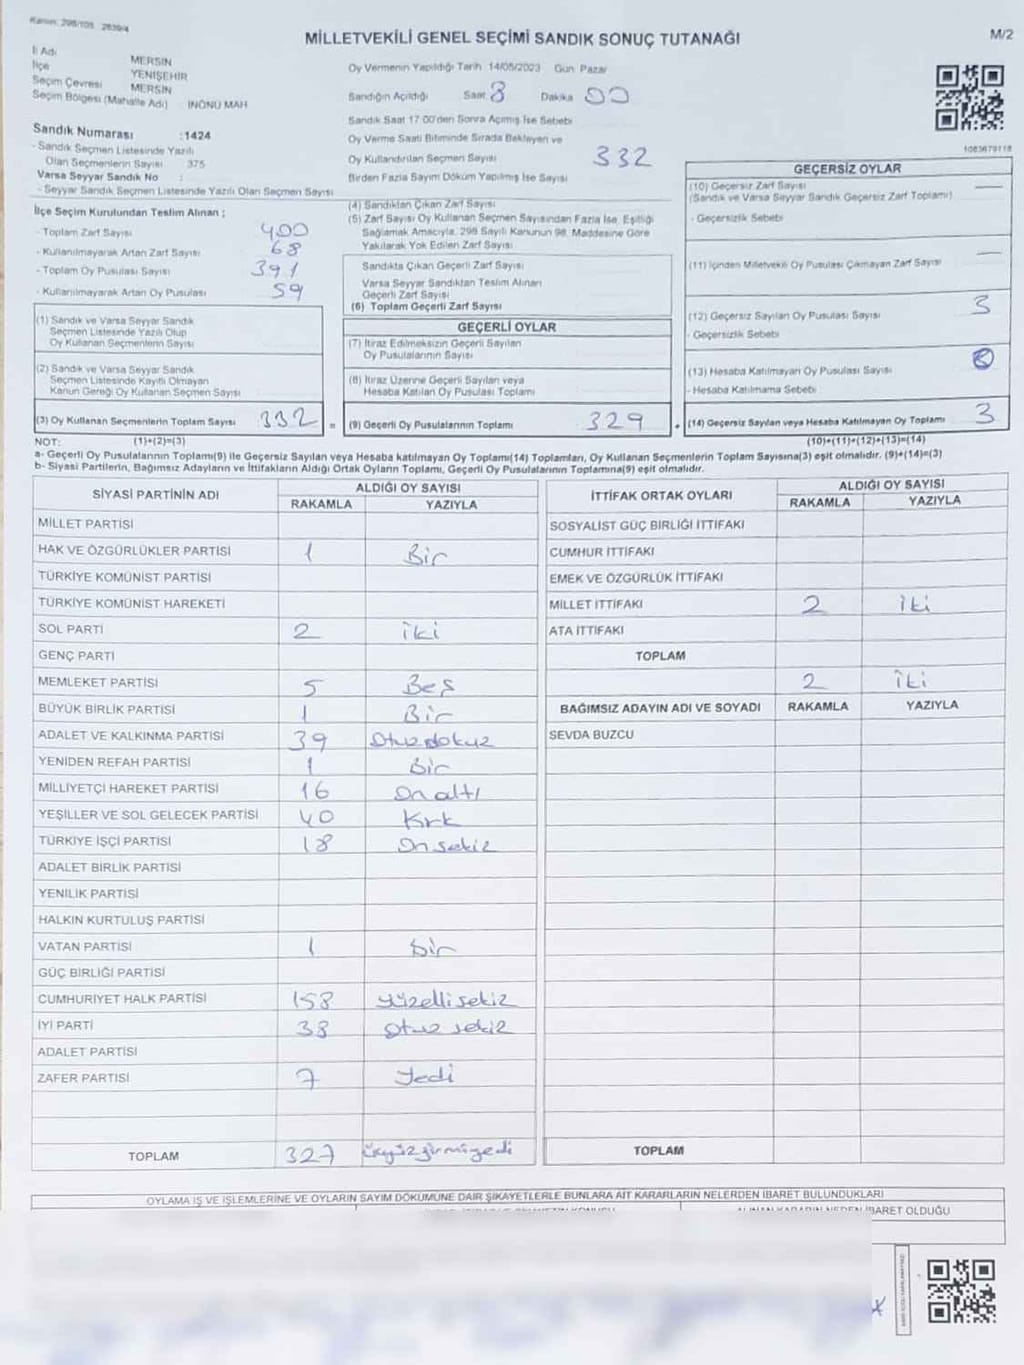 Kanun: 298/105 2839/4
MİLLETVEKİLİ GENEL SEÇİMİ SANDIK SONUÇ TUTANAĞI
M/2
İl Adı MERSİN
İlçe YENİŞEHİR
Seçim Çevresi MERSİN
Seçim Bölgesi (Mahalle Adı) : İNÖNÜ MAH
Sandık Numarası :1424
- Sandık Seçmen Listesinde Yazılı
Olan Seçmenlerin Sayısı 375
Varsa Seyyar Sandık No :
- Seyyar Sandık Seçmen Listesinde Yazılı Olan Seçmen Sayısı
Oy Vermenin Yapıldığı Tarih 14/05/2023 Gün Pazar
Sandığın Açıldığı Saat 8 Dakika 00
Sandık Saat 17:00'den Sonra Açılmış İse Sebebi
Oy Verme Saati Bitiminde Sırada Bekleyen ve
Oy Kullandırılan Seçmen Sayısı 332
Birden Fazla Sayım Döküm Yapılmış İse Sayısı
1083679118
İlçe Seçim Kurulundan Teslim Alınan ;
- Toplam Zarf Sayısı 400
- Kullanılmayarak Artan Zarf Sayısı 68
- Toplam Oy Pusulası Sayısı 391
- Kullanılmayarak Artan Oy Pusulası 59
(1) Sandık ve Varsa Seyyar Sandık
Seçmen Listesinde Yazılı Olup
Oy Kullanan Seçmenlerin Sayısı
(2) Sandık ve Varsa Seyyar Sandık
Seçmen Listesinde Kayıtlı Olmayan
Kanun Gereği Oy Kullanan Seçmen Sayısı
(3) Oy Kullanan Seçmenlerin Toplam Sayısı 332 =
(4) Sandıktan Çıkan Zarf Sayısı
(5) Zarf Sayısı Oy Kullanan Seçmen Sayısından Fazla İse, Eşitliği
Sağlamak Amacıyla, 298 Sayılı Kanunun 98. Maddesine Göre
Yakılarak Yok Edilen Zarf Sayısı
Sandıkta Çıkan Geçerli Zarf Sayısı
Varsa Seyyar Sandıktan Teslim Alınan
Geçerli Zarf Sayısı
(6) Toplam Geçerli Zarf Sayısı
GEÇERLİ OYLAR
(7) İtiraz Edilmeksizin Geçerli Sayılan
Oy Pusulalarının Sayısı
(8) İtiraz Üzerine Geçerli Sayılan veya
Hesaba Katılan Oy Pusulası Toplamı
(9) Geçerli Oy Pusulalarının Toplamı 329 +
GEÇERSİZ OYLAR
(10) Geçersiz Zarf Sayısı —
(Sandık ve Varsa Seyyar Sandık Geçersiz Zarf Toplamı)
- Geçersizlik Sebebi
(11) İçinden Milletvekili Oy Pusulası Çıkmayan Zarf Sayısı —
(12) Geçersiz Sayılan Oy Pusulası Sayısı 3
- Geçersizlik Sebebi
(13) Hesaba Katılmayan Oy Pusulası Sayısı
- Hesaba Katılmama Sebebi
(14) Geçersiz Sayılan veya Hesaba Katılmayan Oy Toplamı 3
NOT: (1)+(2)=(3) (10)+(11)+(12)+(13)=(14)
a- Geçerli Oy Pusulalarının Toplamı(9) ile Geçersiz Sayılan veya Hesaba katılmayan Oy Toplamı(14) Toplamları, Oy Kullanan Seçmenlerin Toplam Sayısına(3) eşit olmalıdır. (9)+(14)=(3)
b- Siyasi Partilerin, Bağımsız Adayların ve İttifakların Aldığı Ortak Oyların Toplamı, Geçerli Oy Pusulalarının Toplamına(9) eşit olmalıdır.
SİYASİ PARTİNİN ADI ALDIĞI OY SAYISI
RAKAMLA YAZIYLA
MİLLET PARTİSİ
HAK VE ÖZGÜRLÜKLER PARTİSİ 1 Bir
TÜRKİYE KOMÜNİST PARTİSİ
TÜRKİYE KOMÜNİST HAREKETİ
SOL PARTİ 2 iki
GENÇ PARTİ
MEMLEKET PARTİSİ 5 Beş
BÜYÜK BİRLİK PARTİSİ 1 Bir
ADALET VE KALKINMA PARTİSİ 39 Otuzdokuz
YENİDEN REFAH PARTİSİ 1 Bir
MİLLİYETÇİ HAREKET PARTİSİ 16 Onaltı
YEŞİLLER VE SOL GELECEK PARTİSİ 40 Kırk
TÜRKİYE İŞÇİ PARTİSİ 18 Onsekiz
ADALET BİRLİK PARTİSİ
YENİLİK PARTİSİ
HALKIN KURTULUŞ PARTİSİ
VATAN PARTİSİ 1 bir
GÜÇ BİRLİĞİ PARTİSİ
CUMHURİYET HALK PARTİSİ 158 yüzellisekiz
İYİ PARTİ 38 Otuz sekiz
ADALET PARTİSİ
ZAFER PARTİSİ 7 Yedi
TOPLAM 327 üçyüzyirmiyedi
İTTİFAK ORTAK OYLARI ALDIĞI OY SAYISI
RAKAMLA YAZIYLA
SOSYALİST GÜÇ BİRLİĞİ İTTİFAKI
CUMHUR İTTİFAKI
EMEK VE ÖZGÜRLÜK İTTİFAKI
MİLLET İTTİFAKI 2 iki
ATA İTTİFAKI
TOPLAM 2 iki
BAĞIMSIZ ADAYIN ADI VE SOYADI RAKAMLA YAZIYLA
SEVDA BUZCU
TOPLAM
OYLAMA İŞ VE İŞLEMLERİNE VE OYLARIN SAYIM DÖKÜMÜNE DAİR ŞİKAYETLERLE BUNLARA AİT KARARLARIN NELERDEN İBARET BULUNDUKLARI
ALINAN KARARIN NEDEN İBARET OLDUĞU